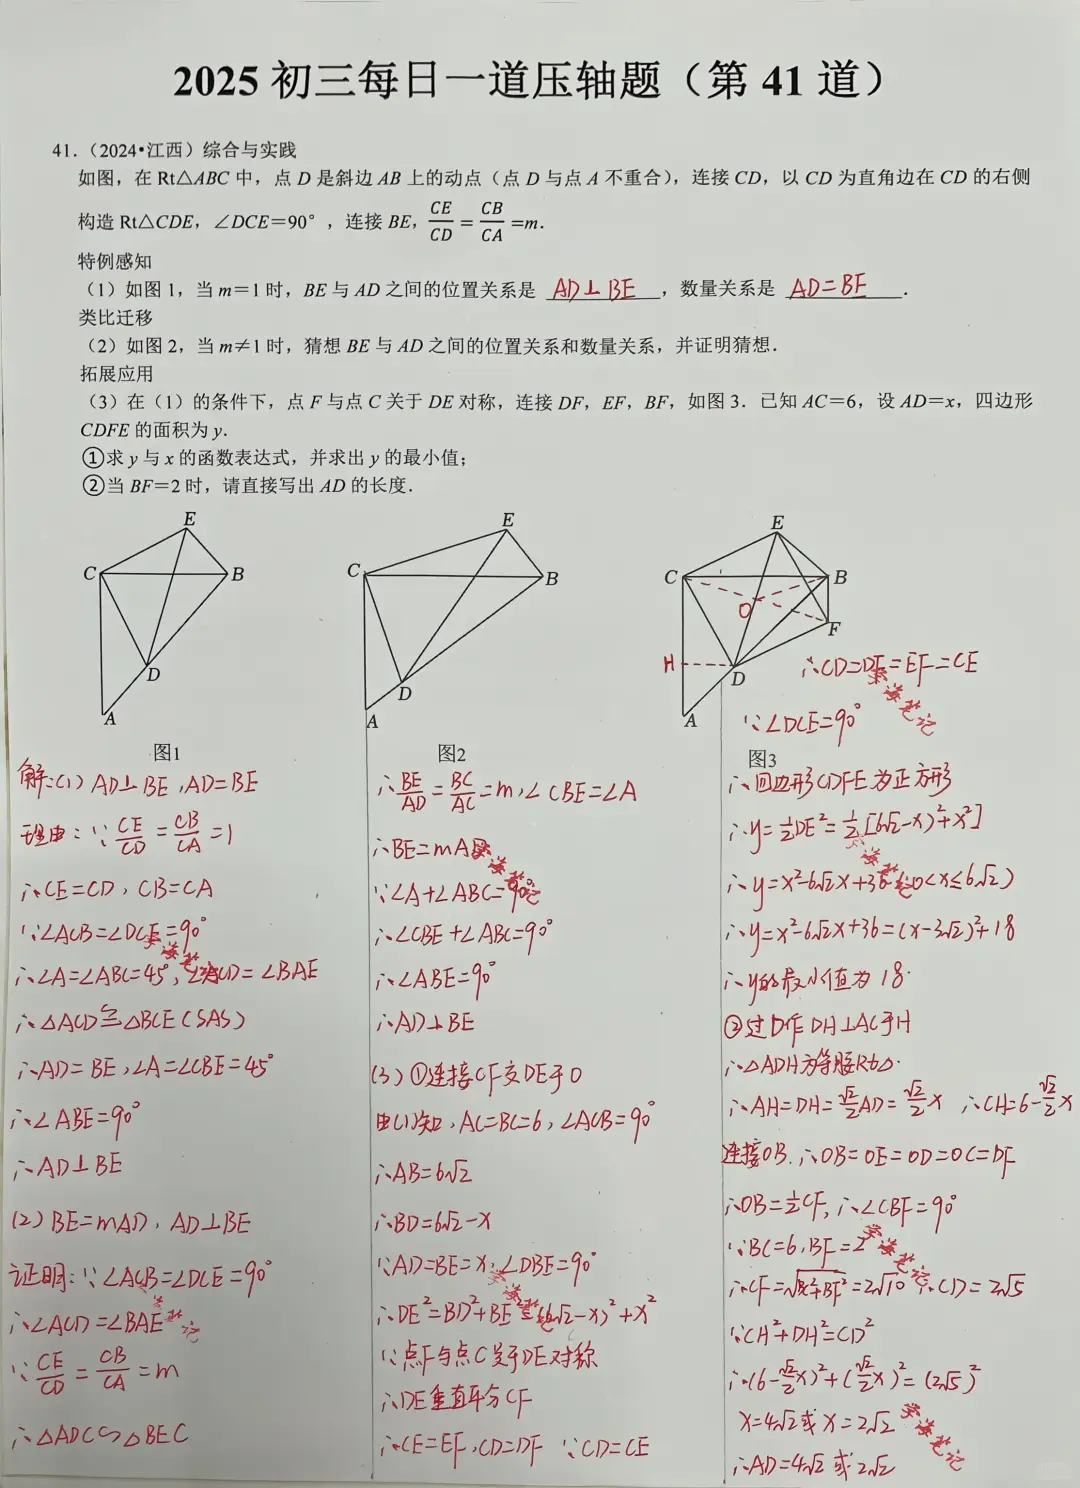 2025 初三每日一道压轴题（第 41 道）
41.（2024•江西）综合与实践
如图，在 Rt△ABC 中，点 D 是斜边 AB 上的动点（点 D 与点 A 不重合），连接 CD，以 CD 为直角边在 CD 的右侧
构造 Rt△CDE，∠DCE＝90°，连接 BE，CE/CD = CB/CA =m.
特例感知
（1）如图 1，当 m＝1 时，BE 与 AD 之间的位置关系是 AD⊥BE ，数量关系是 AD=BE .
类比迁移
（2）如图 2，当 m≠1 时，猜想 BE 与 AD 之间的位置关系和数量关系，并证明猜想.
拓展应用
（3）在（1）的条件下，点 F 与点 C 关于 DE 对称，连接 DF，EF，BF，如图 3．已知 AC＝6，设 AD＝x，四边形
CDFE 的面积为 y.
①求 y 与 x 的函数表达式，并求出 y 的最小值；
②当 BF＝2 时，请直接写出 AD 的长度.
E
C
B
D
A
图1
E
C
B
D
A
图2
E
C
B
O
F
H
D
A
图3
解:(1) AD⊥BE ,AD=BE
理由: ∵ CE/CD = CB/CA =1
∴CE=CD, CB=CA
∵∠ACB=∠DCE=90°
∴∠A=∠ABC=45°, ∠ACD=∠BAE
∴△ACD≌△BCE(SAS)
∴AD=BE,∠A=∠CBE=45°
∴∠ABE=90°
∴AD⊥BE
(2) BE=mAD, AD⊥BE
证明: ∵∠ACB=∠DCE=90°
∴∠ACD=∠BAE
∵ CE/CD = CB/CA =m
∴△ADC∽△BEC
∴ BE/AD = BC/AC =m,∠CBE=∠A
∴BE=mAD
∵∠A+∠ABC=90°
∴∠CBE+∠ABC=90°
∴∠ABE=90°
∴AD⊥BE
(3) ①连接CF交DE于O
由(1)知, AC=BC=6, ∠ACB=90°
∴AB=6√2
∴BD=6√2-x
∵AD=BE=x,∠DBE=90°
∴DE²=BD²+BE²=(6√2-x)²+x²
∵点F与点C关于DE对称
∴DE垂直平分CF
∴CE=EF,CD=DF ∵CD=CE
∴CD=DF=EF=CE
∵∠DCE=90°
∴四边形CDFE为正方形
∴y=½DE²=½[(6√2-x)²+x²]
∴y=x²-6√2x+36(0<x≤6√2)
∴y=x²-6√2x+36=(x-3√2)²+18
∴y的最小值为18.
②过D作DH⊥AC于H
∴△ADH为等腰Rt△.
∴AH=DH=√2/2AD=√2/2x ∴CH=6-√2/2x
连接OB.∴OB=OE=OD=OC=DF
∴OB=½CF, ∴∠CBF=90°
∵BC=6,BF=2
∴CF=√BC²+BF²=2√10 ∴CD=2√5
∵CH²+DH²=CD²
∴(6-√2/2x)²+(√2/2x)²=(2√5)²
x=4√2或x=2√2
∴AD=4√2或2√2
学海笔记
学海笔记
学海笔记
学海笔记
学海笔记
学海笔记
学海笔记
学海笔记